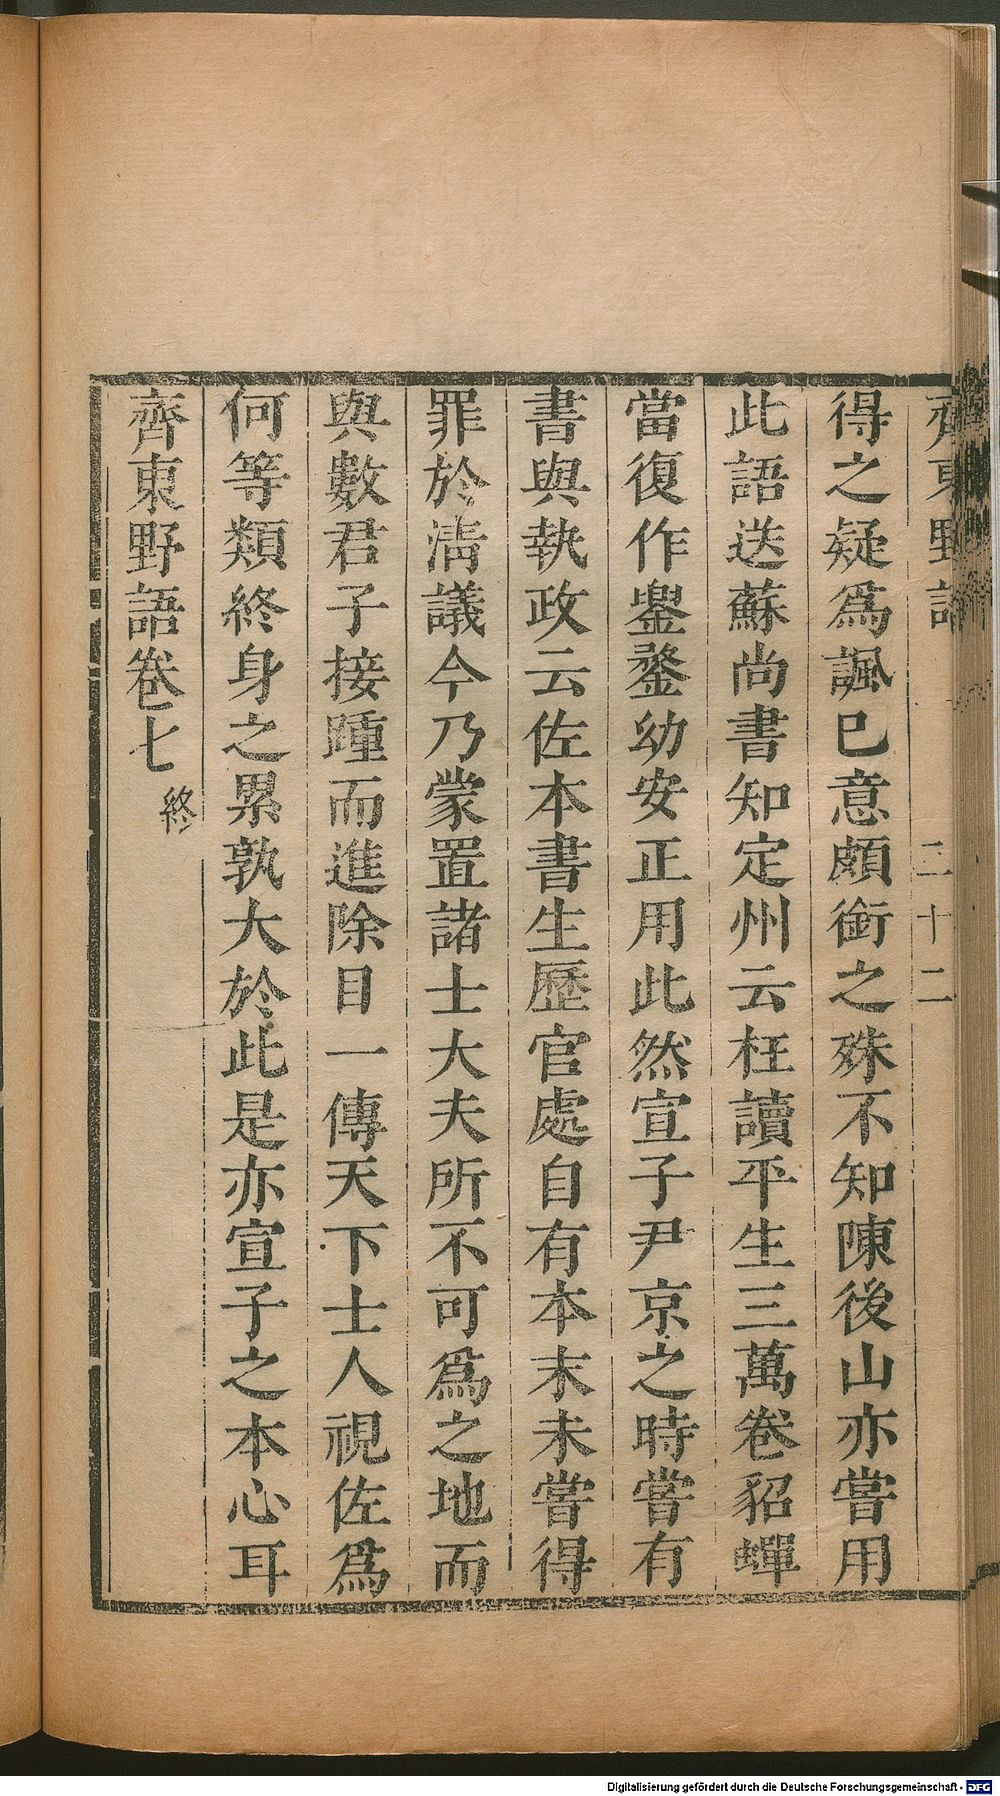 齊東野語
二十二
得之疑爲諷已意頗銜之殊不知陳後山亦嘗用
此語送蘇尚書知定州云枉讀平生三萬卷貂蟬
當復作鍪幼安正用此然宣子尹京之時嘗有
書與執政云佐本書生歷官處自有本末未嘗得
罪於清議今乃蒙置諸士大夫所不可爲之地而
與數君子接踵而進除目一傳天下士人視佐爲
何等類終身之累孰大於此是亦宣子之本心耳
齊東野語卷七
終
Digitalisierung gefördert durch die Deutsche Forschungsgemeinschaft - DFG